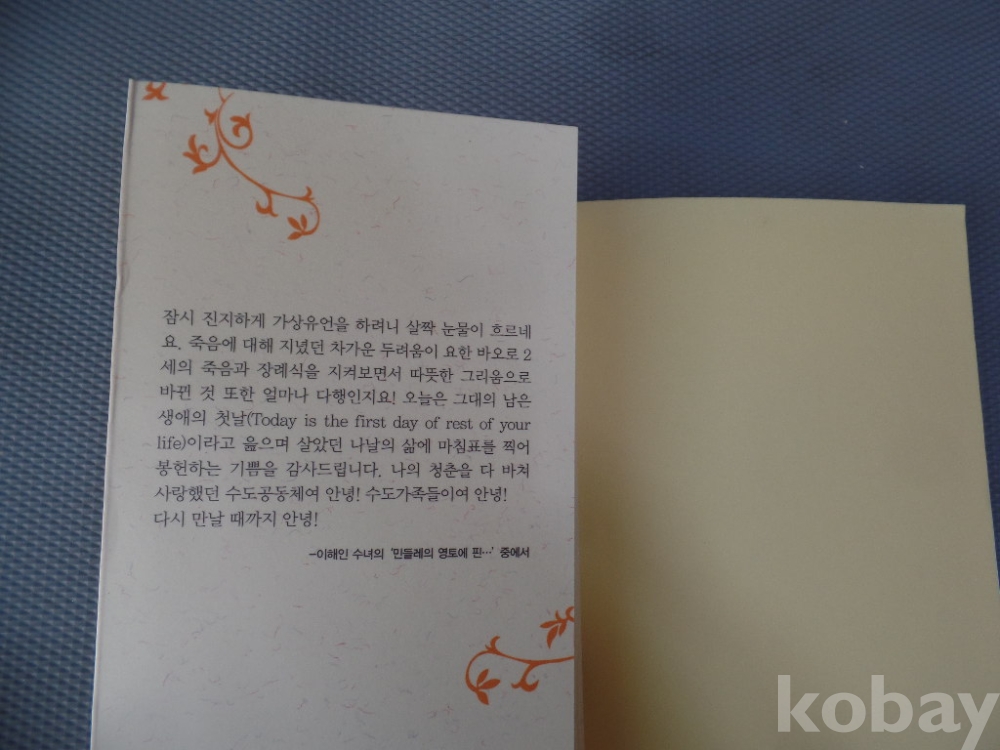 잠시 진지하게 가상유언을 하려니 살짝 눈물이 흐르네
요. 죽음에 대해 지녔던 차가운 두려움이 요한 바오로 2
세의 죽음과 장례식을 지켜보면서 따뜻한 그리움으로
바뀐 것 또한 얼마나 다행인지요! 오늘은 그대의 남은
생애의 첫날(Today is the first day of rest of your
life)이라고 읊으며 살았던 나날의 삶에 마침표를 찍어
봉헌하는 기쁨을 감사드립니다. 나의 청춘을 다 바쳐
사랑했던 수도공동체여 안녕! 수도가족들이여 안녕!
다시 만날 때까지 안녕!
-이해인 수녀의 '민들레의 영토에 핀…' 중에서
kobay